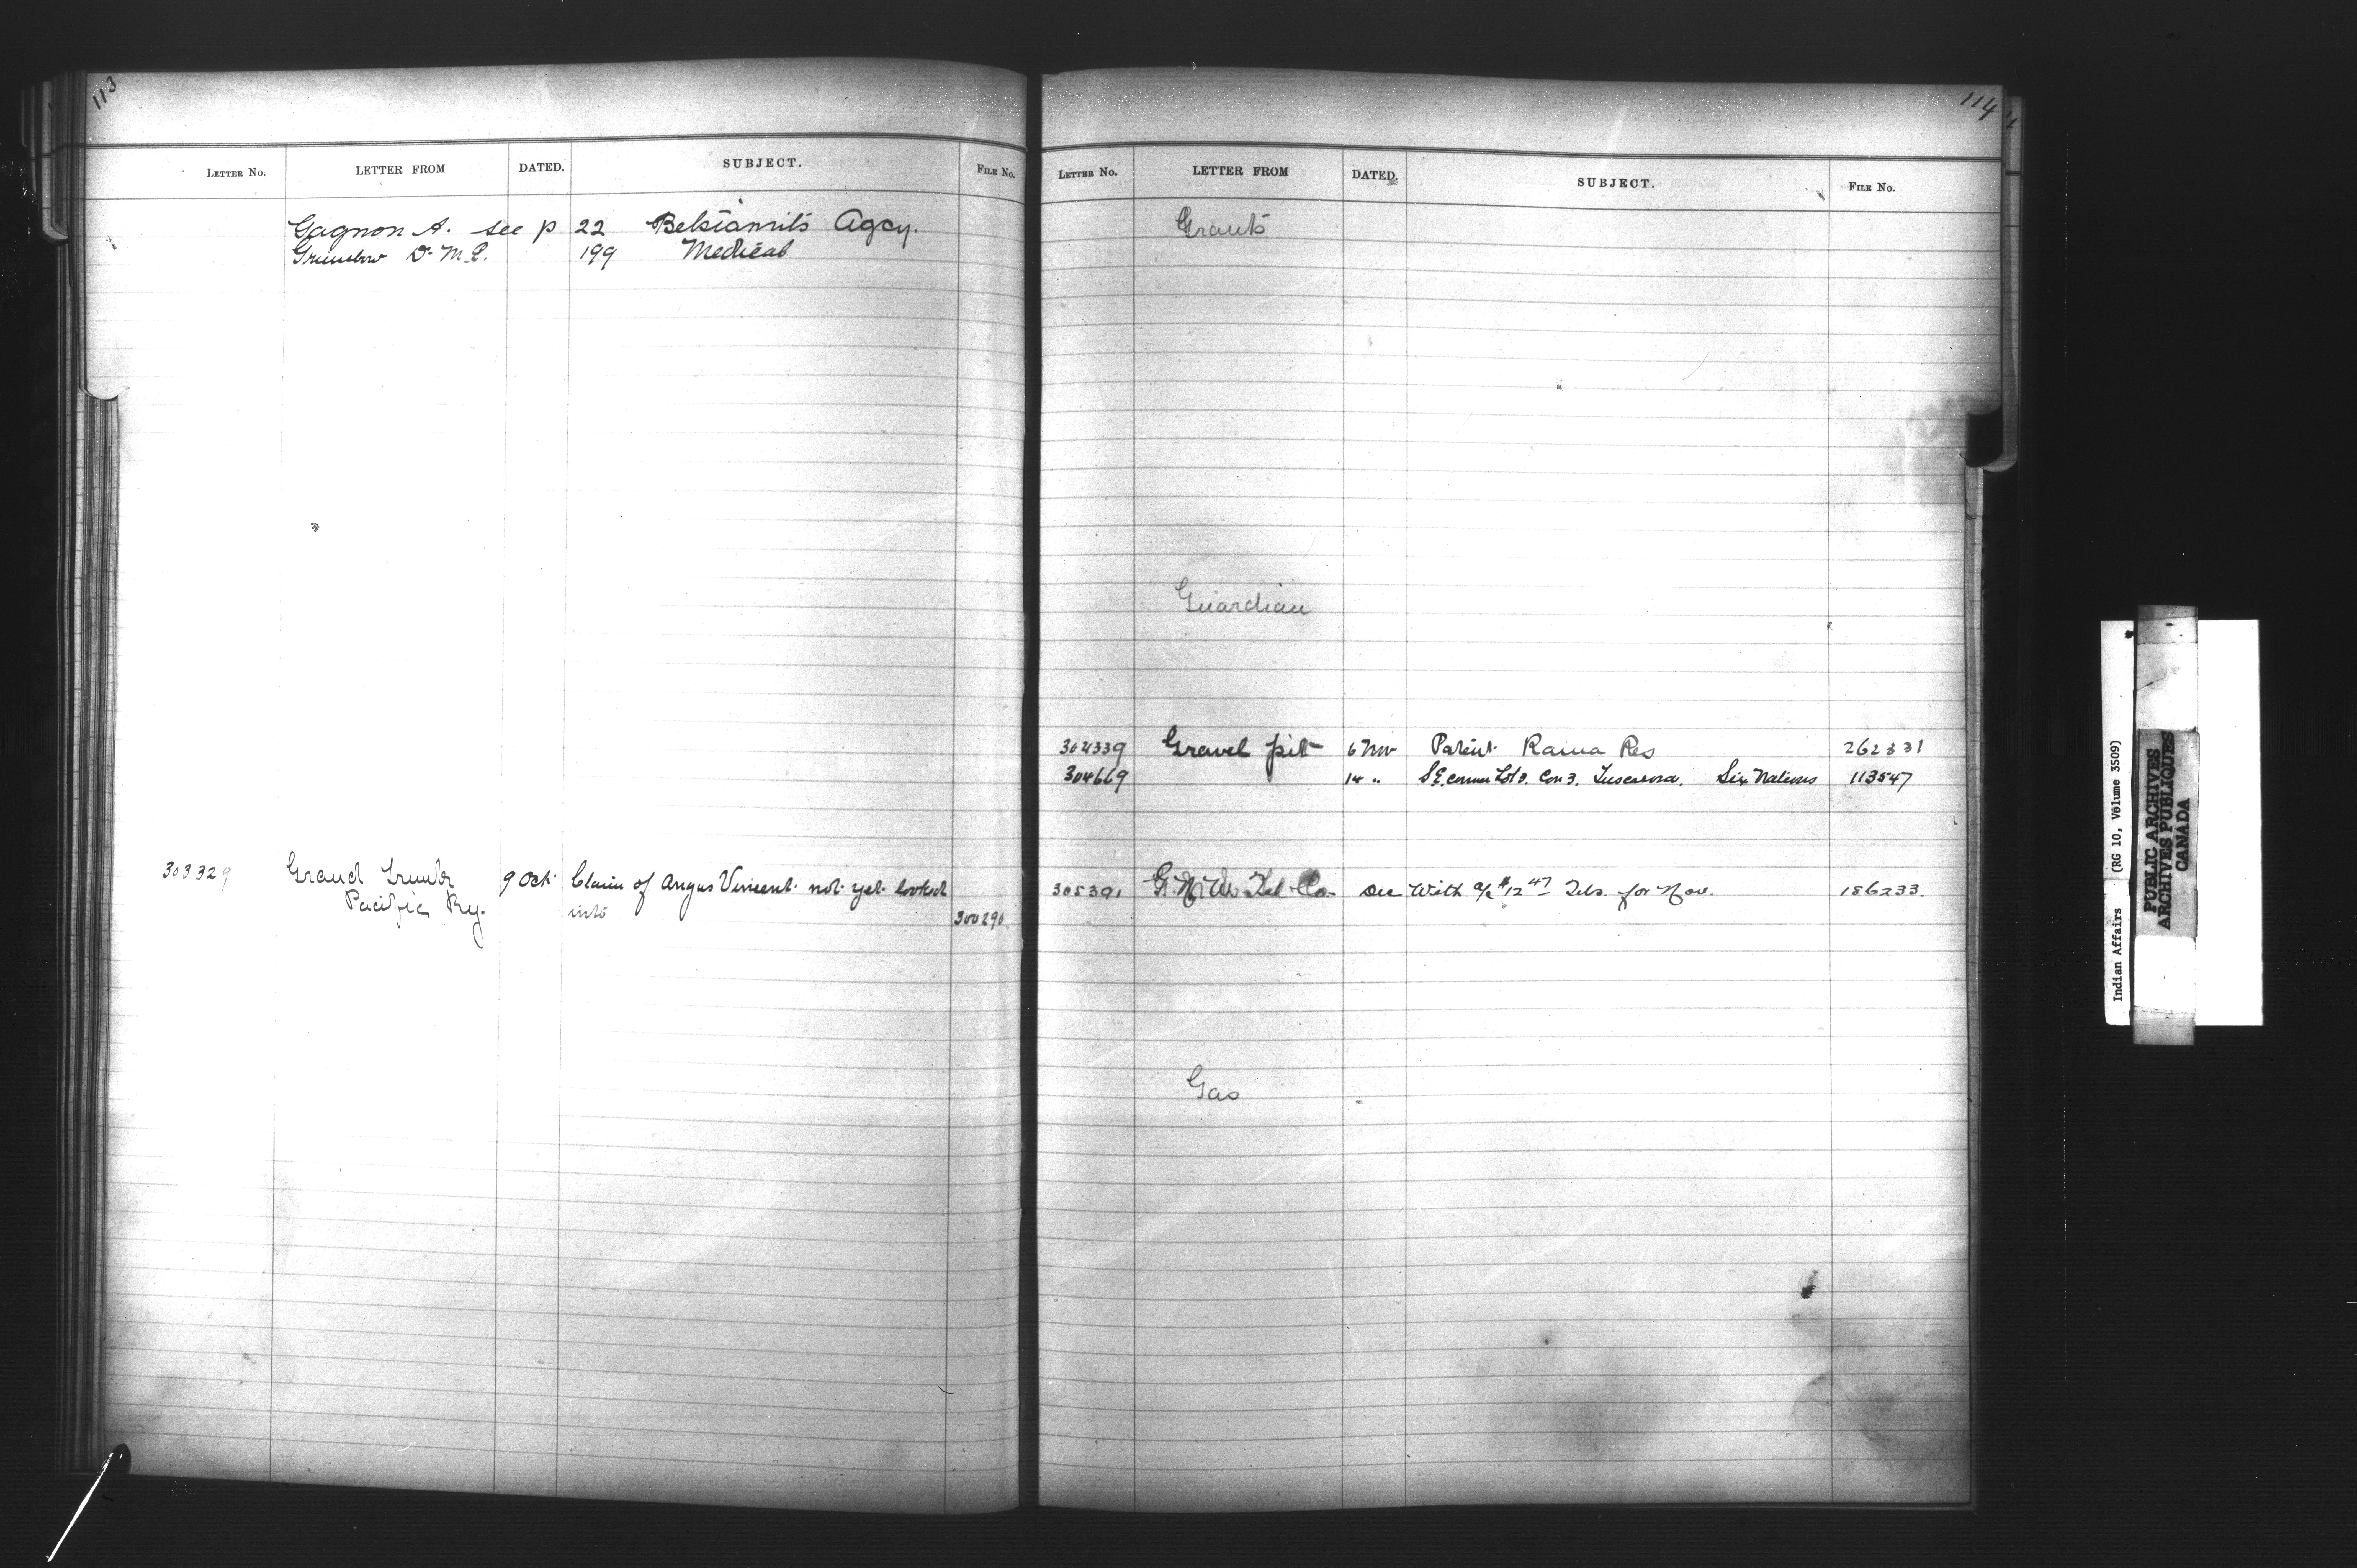 113
LETTER NO. LETTER FROM DATED. SUBJECT. FILE NO.
Gagnon A. see p 22 Betsiamits Agcy.
D. M. E. 199 Medical
303329 Grand Trunk 9 Oct Claim of Angus Vincent not yet looked
Pacific Ry. into 300290
114
LETTER NO. LETTER FROM DATED. SUBJECT. FILE NO.
Grants
Guardian
304339 Gravel pit 6 Nov Patent Rama Res 262331
304669 14 " S.E. corner Lot 3. Con 3. Tuscarora. Six Nations 113547
305391 G. N. W. Tel Co. Dec With a/c $12 47 Tels. for Nov. 186233.
Gas
Indian Affairs (RG 10, Volume 3509)
PUBLIC ARCHIVES
ARCHIVES PUBLIQUES
CANADA